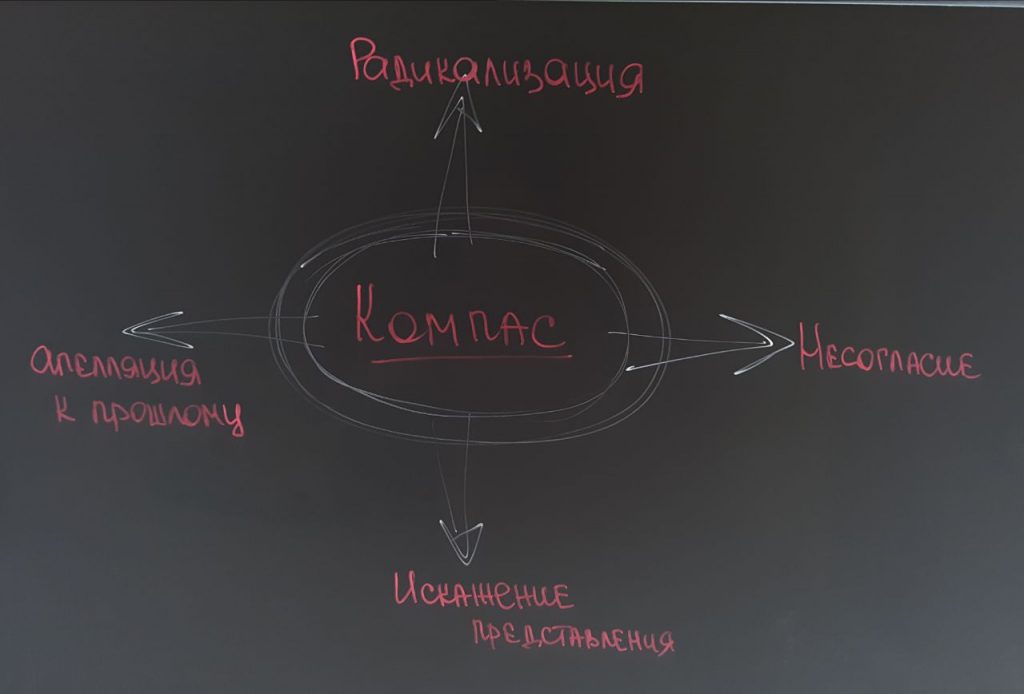 Радикализация
Компас
Несогласие
апелляция
к прошлому
Искажение
представления